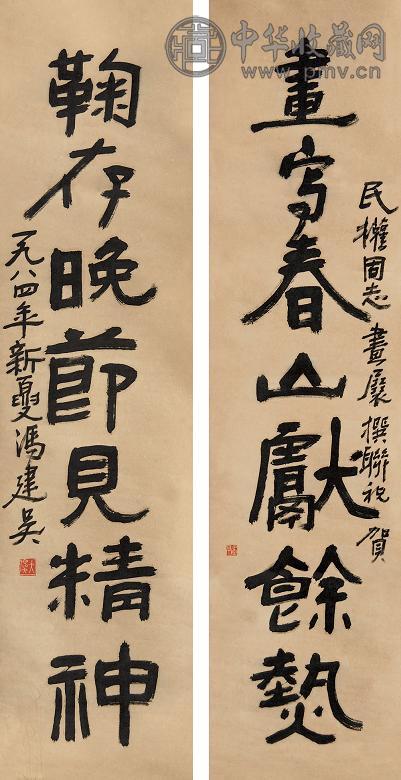 民權同志畫展撰聯祝賀
畫寫春山獻餘熱
鞠存晚節見精神
一九八四年新夏馮建吳
中华收藏网
www.pmv.cn